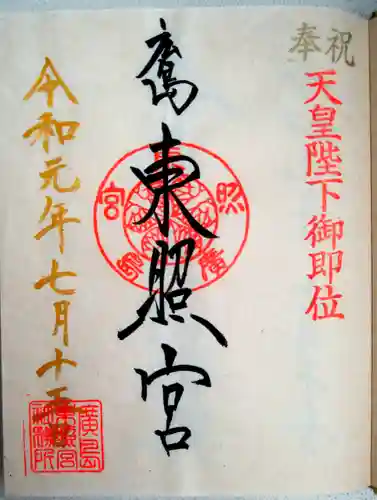 奉祝
天皇陛下御即位
東照宮
令和元年七月十五日
廣島
東照宮
社務所